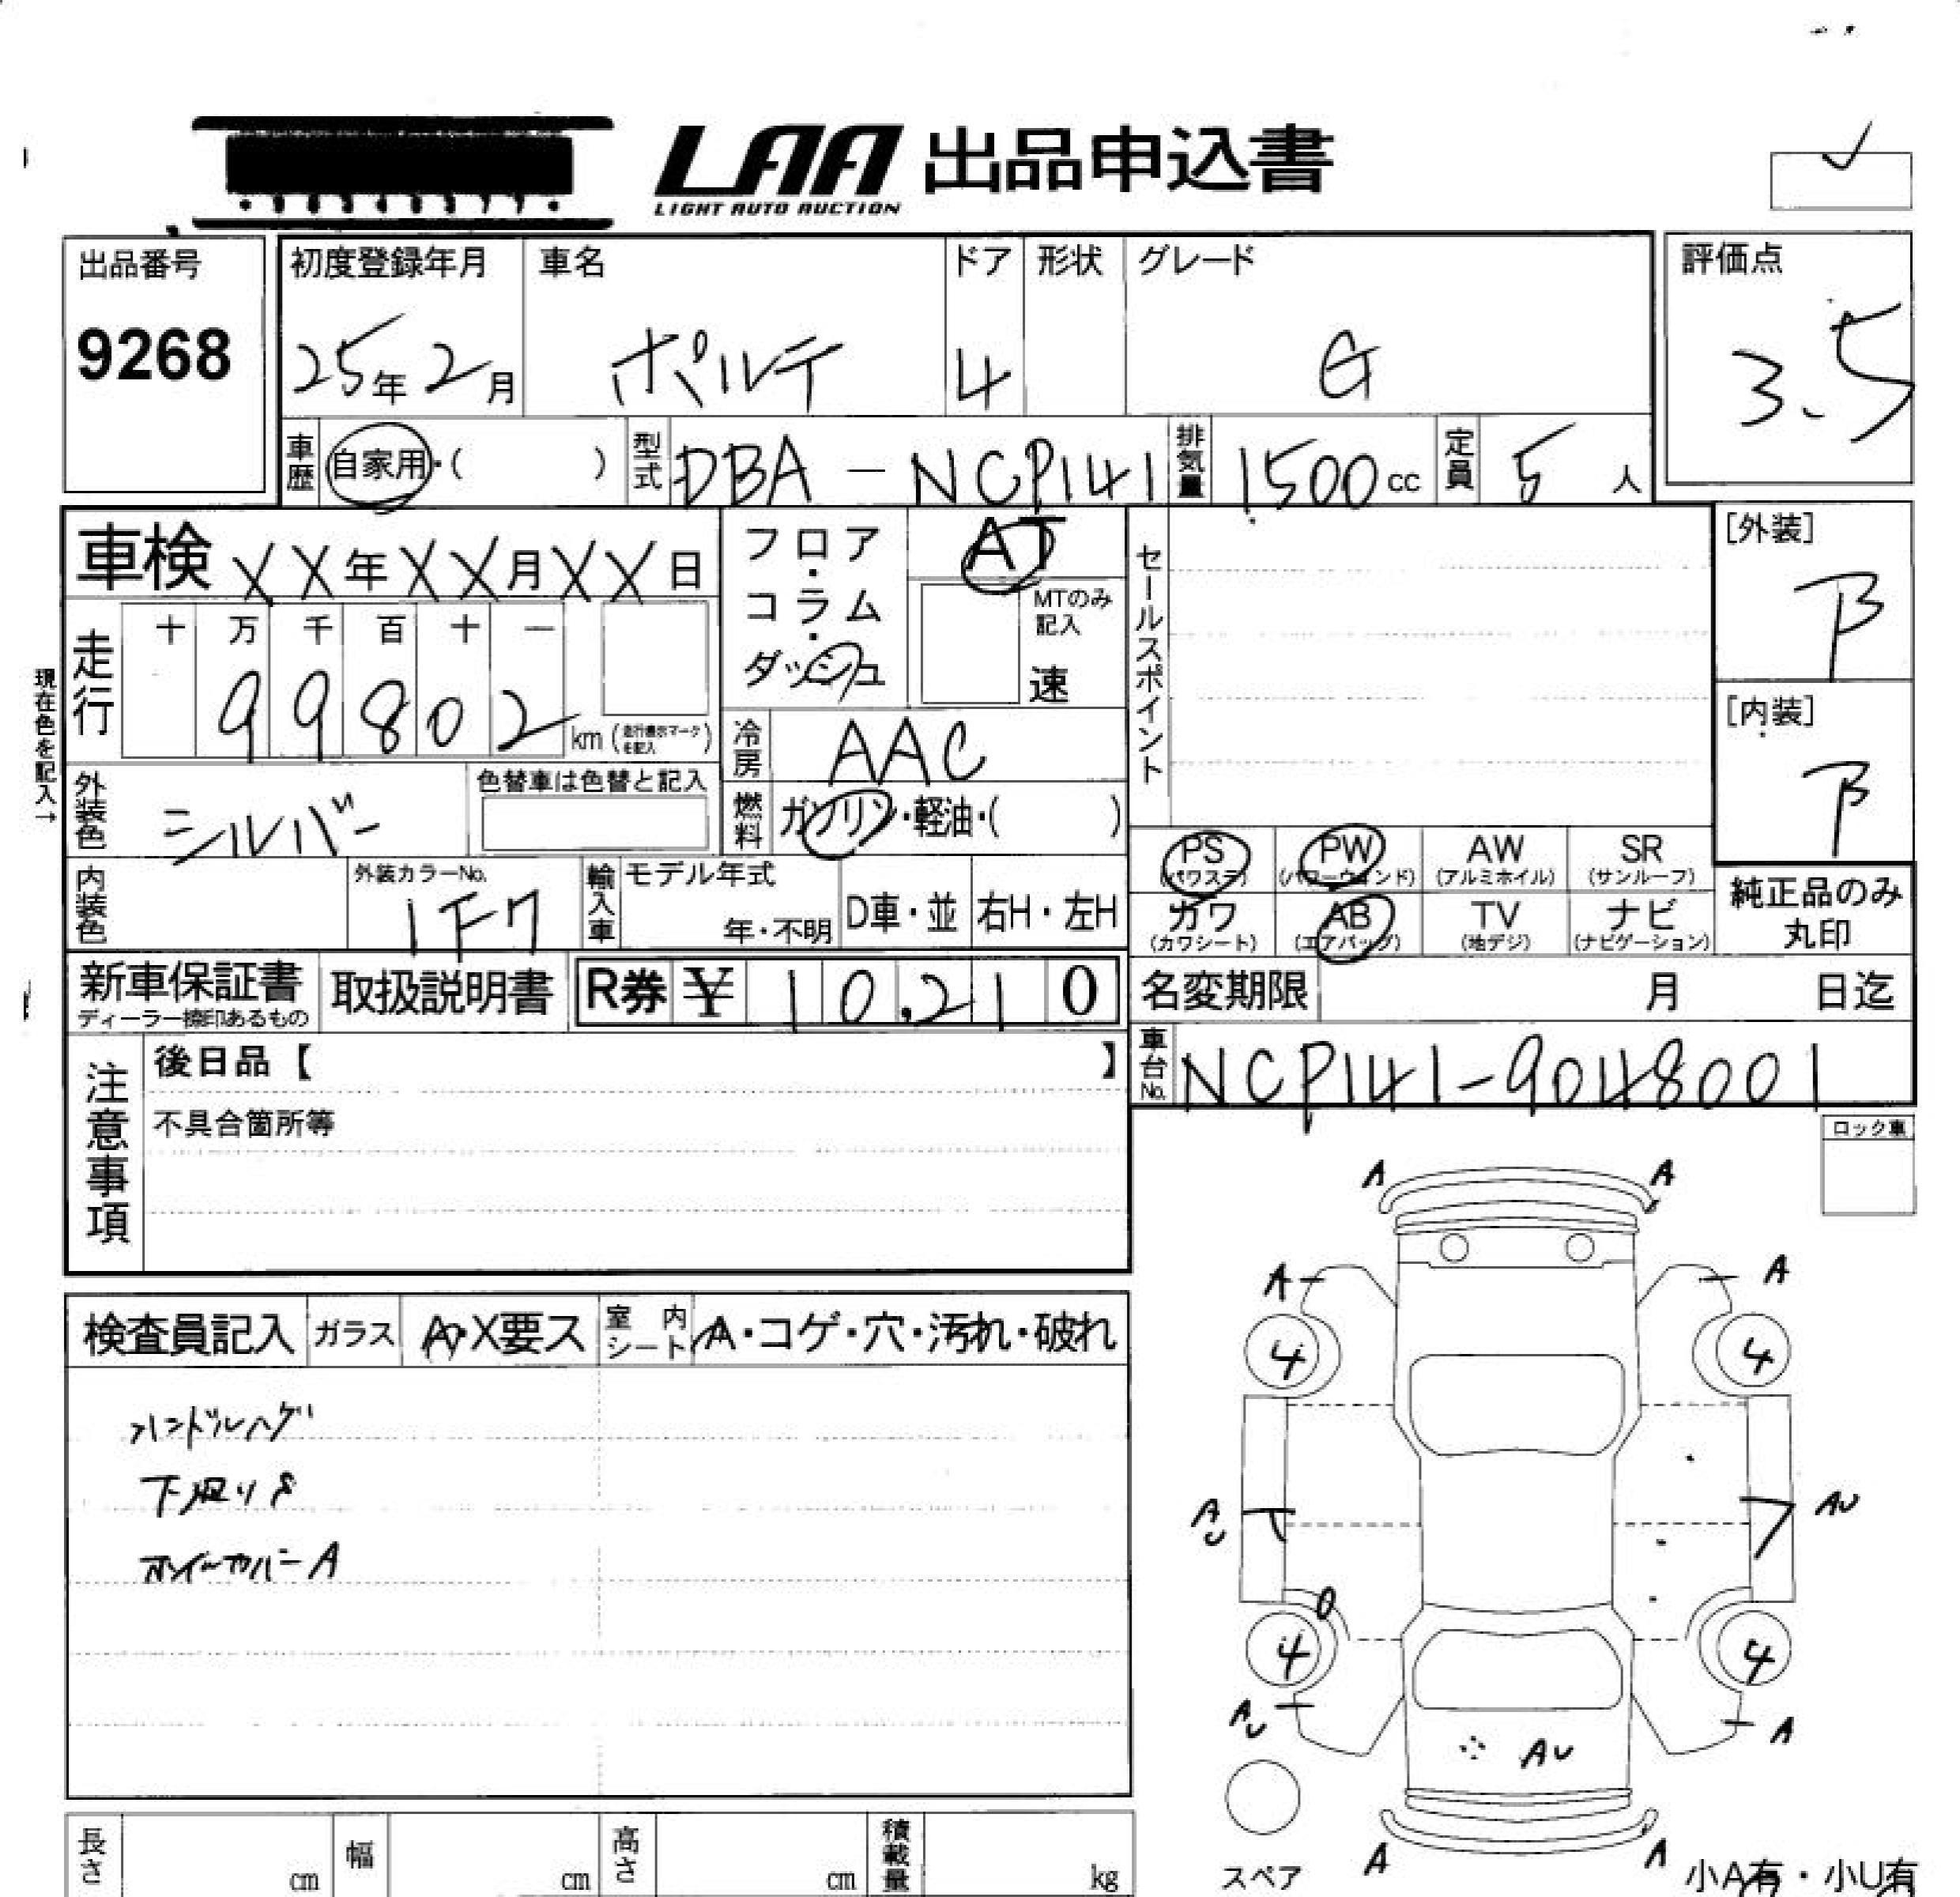 LAA 出品申込書
LIGHT AUTO AUCTION
出品番号
9268
初度登録年月
25年2月
車名
ポルテ
ドア
4
形状
グレード
G
評価点
3.5
車歴
自家用・( )
型式
DBA-NCP141
排気量
1500cc
定員
5人
車検 XX年XX月XX日
フロア・コラム・ダッシュ
AT
MTのみ記入
速
セールスポイント
[外装]
B
[内装]
B
現在色を記入→
走行
十 万 千 百 十 一
99802 km (走行表示マークを記入)
冷房
AAC
外装色
シルバー
色替車は色替と記入
燃料
ガソリン・軽油・( )
内装色
外装カラーNo.
1F7
輸入車
モデル年式
年・不明
D車・並
右H・左H
PS (パワステ)
PW (パワーウィンド)
AW (アルミホイル)
SR (サンルーフ)
カワ (カワシート)
AB (エアバッグ)
TV (地デジ)
ナビ (ナビゲーション)
純正品のみ丸印
新車保証書
ディーラー捺印あるもの
取扱説明書
R券 ¥ 10,210
名変期限 月 日迄
注意事項
後日品【 】
不具合箇所等
車台No.
NCP141-9048001
ロック車
検査員記入
ガラス
A・X要ス
室内シート
A・コゲ・穴・汚れ・破れ
ハンドルハゲ
下廻りS
ホイールカバーA
A A
A A
4 4
AU AU
4 4
AU A
AU
A A
スペア
小A有・小U有
長さ cm
幅 cm
高さ cm
積載量 kg